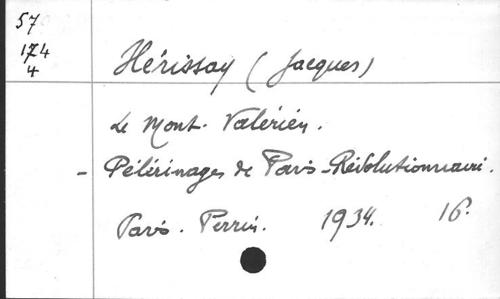 57
174
4
Hérissay (Jacques)
Le Mont-Valérien.
- Pélérinages de Paris-Révolutionnaire.
Paris. Perrin. 1934. 16°.